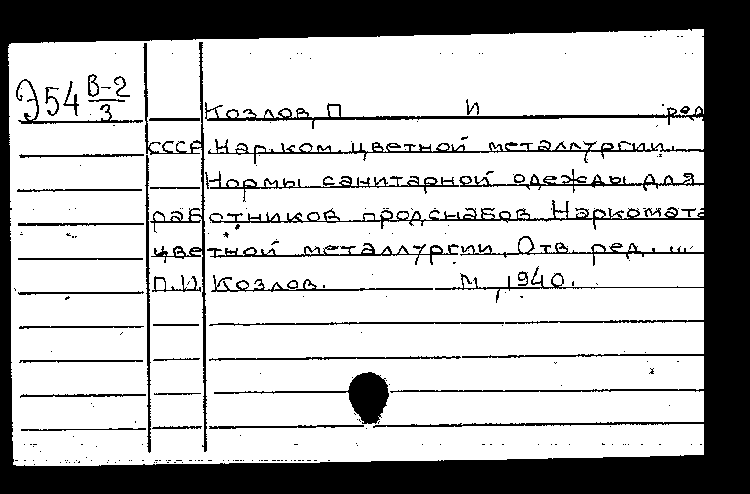 Э54 В-2/3
Козлов, П И ред
СССР. Нар. ком. цветной металлургии.
Нормы санитарной одежды для
работников продснабов Наркомата
цветной металлургии. Отв. ред. ...
П.И. Козлов. М., 1940.